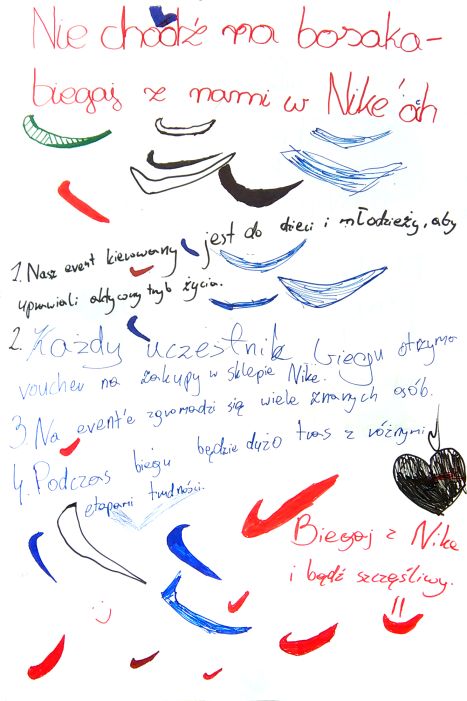 Nie chodź na bosaka-
biegaj z nami w Nike'ach
1. Nasz event kierowany jest do dzieci i młodzieży, aby
uprawiali aktywny tryb życia.
2. Każdy uczestnik biegu otrzyma
voucher na zakupy w sklepie Nike.
3. Na event'e zgromadzi się wiele znanych osób.
4. Podczas biegu będzie dużo tras z różnymi
etapami trudności.
Biegaj z Nike
i bądź szczęśliwy.